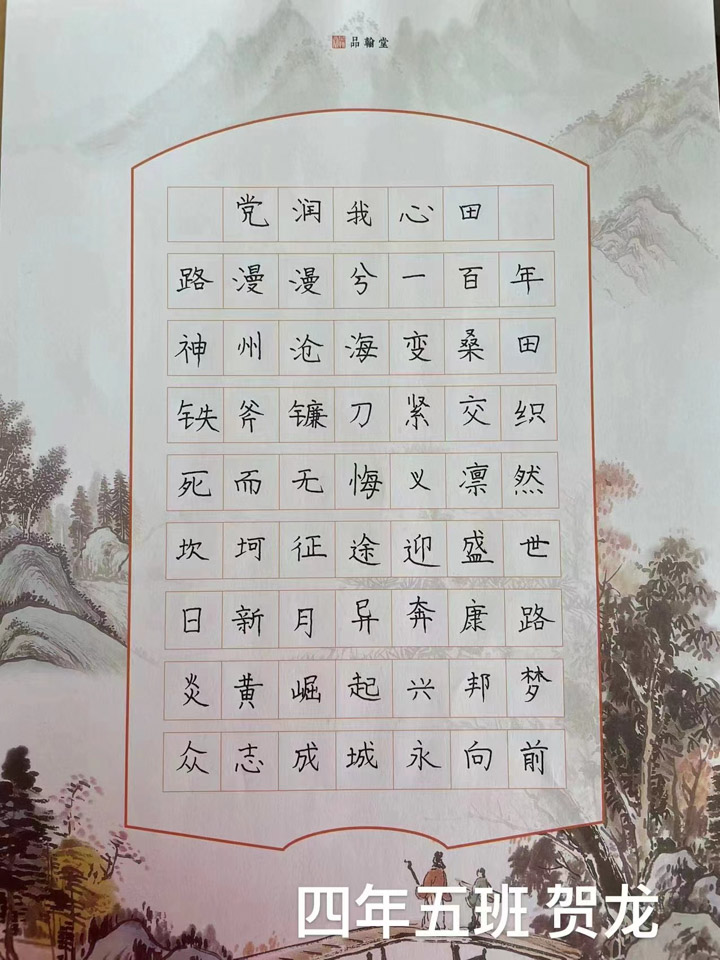 品翰堂
党润我心田
路漫漫兮一百年
神州沧海变桑田
铁斧镰刀紧交织
死而无悔义凛然
坎坷征途迎盛世
日新月异奔康路
炎黄崛起兴邦梦
众志成城永向前
四年五班 贺龙